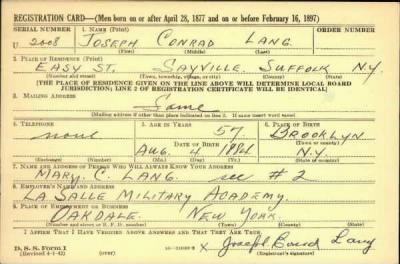 REGISTRATION CARD—(Men born on or after April 28, 1877 and on or before February 16, 1897)
SERIAL NUMBER 1. NAME (Print) ORDER NUMBER
U 2008 JOSEPH CONRAD LANG.
(First) (Middle) (Last)
2. PLACE OF RESIDENCE (Print)
EASY ST. SAYVILLE, SUFFOLK N.Y.
(Number and street) (Town, township, village, or city) (County) (State)
[THE PLACE OF RESIDENCE GIVEN ON THE LINE ABOVE WILL DETERMINE LOCAL BOARD
JURISDICTION; LINE 2 OF REGISTRATION CERTIFICATE WILL BE IDENTICAL]
3. MAILING ADDRESS
Same
(Mailing address if other than place indicated on line 2. If same insert word same)
4. TELEPHONE 5. AGE IN YEARS 6. PLACE OF BIRTH
none 57. BROOKLYN
DATE OF BIRTH (Town or county)
AUG. 4 N.Y.
(Exchange) (Number) (Mo.) (Day) (Yr.) (State or country)
7. NAME AND ADDRESS OF PERSON WHO WILL ALWAYS KNOW YOUR ADDRESS
MARY. C. LANG. see #2
8. EMPLOYER'S NAME AND ADDRESS
LA SALLE MILITARY ACADEMY.
9. PLACE OF EMPLOYMENT OR BUSINESS
OAKDALE. NEW YORK.
(Number and street or R. F. D. number) (Town) (County) (State)
I AFFIRM THAT I HAVE VERIFIED ABOVE ANSWERS AND THAT THEY ARE TRUE.
D. S. S. Form 1
(Revised 4-1-42) (over) x Joseph Conrad Lang
(Registrant's signature)